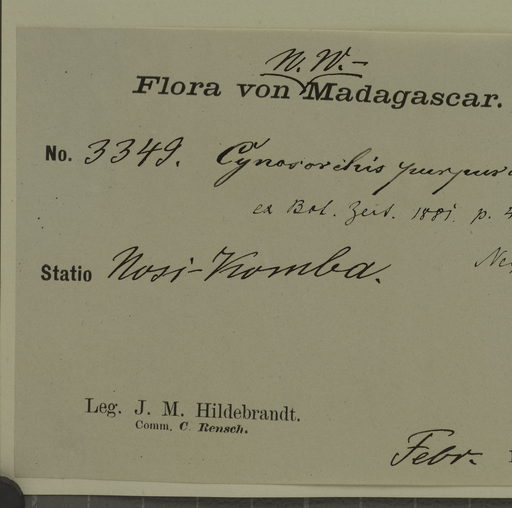 N. W.-
Flora von Madagascar.
No. 3349. Cynosorchis purpur
ex Bot. Zeit. 1881. p. 4
Statio Nosi-Komba.
Leg. J. M. Hildebrandt.
Comm. C. Rensch.
Febr.